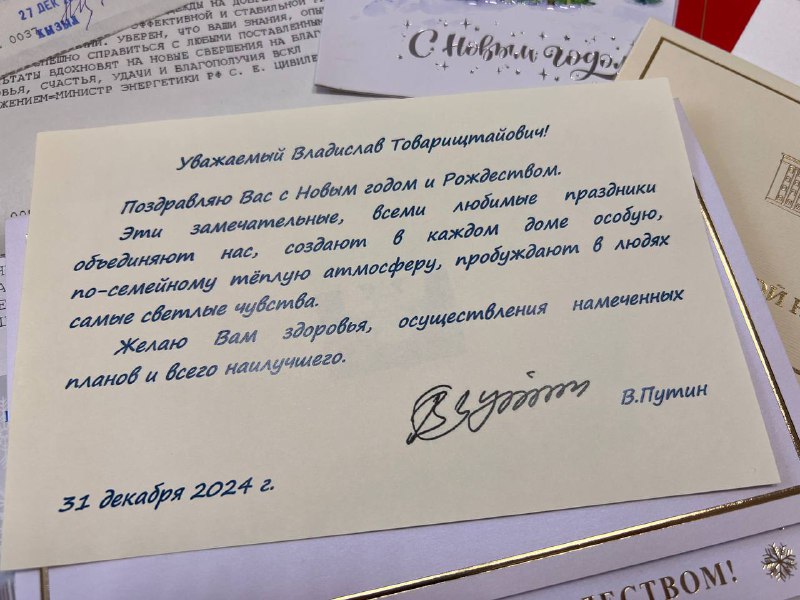 27 ДЕК
КЫЗЫЛ
ЭФФЕКТИВНОЙ И СТАБИЛЬНОЙ
УВЕРЕН, ЧТО ВАШИ ЗНАНИЯ,
СПРАВИТЬСЯ С ЛЮБЫМИ
ВДОХНОВЯТ НА НОВЫЕ СВЕРШЕНИЯ НА
СЧАСТЬЯ, УДАЧИ И БЛАГОПОЛУЧИЯ
МИНИСТР ЭНЕРГЕТИКИ РФ С. Е. ЦИВИЛЕ
С Новым годом
Уважаемый Владислав Товарищтайович!
Поздравляю Вас с Новым годом и Рождеством.
Эти замечательные, всеми любимые праздники
объединяют нас, создают в каждом доме особую,
по-семейному тёплую атмосферу, пробуждают в людях
самые светлые чувства.
Желаю Вам здоровья, осуществления намеченных
планов и всего наилучшего.
В.Путин
31 декабря 2024 г.
ЕСТВОМ!